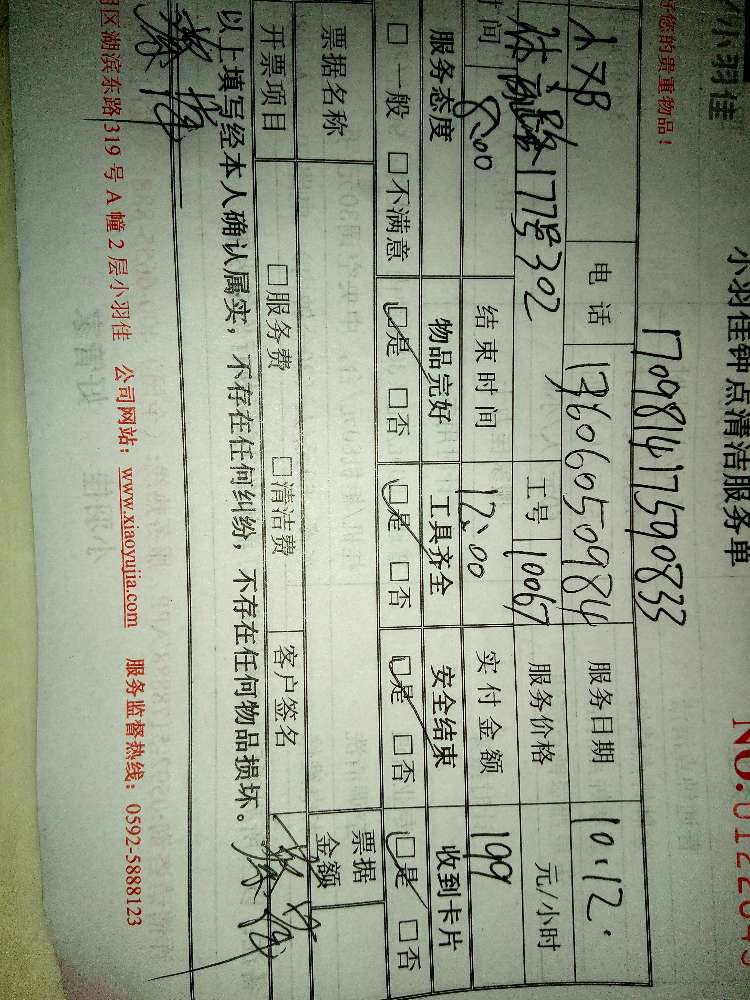 小羽佳
小羽佳钟点清洁服务单
NO:0122049
好您的贵重物品！
170981417590833
电话 13606050984 服务日期 10.12.
体育路177号302 工号 10067 服务价格 元/小时
时间 8:00 结束时间 12:00 实付金额 199
服务态度 物品完好 工具齐全 安全结束 收到卡片
□一般 □不满意 □是 □否 □是 □否 □是 □否 □是 □否
票据名称 票据金额
开票项目 □服务费 □清洁费 客户签名
以上填写经本人确认属实，不存在任何纠纷，不存在任何物品损坏。
区湖滨东路 319 号 A 幢 2 层小羽佳 公司网站：www.xiaoyujia.com 服务监督热线：0592-5888123